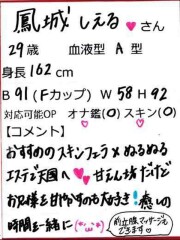 鳳城 しえる♥さん
29歳 血液型 A 型
身長 162 cm
B 91 (Fカップ) W 58 H 92
対応可能OP オナ鑑(○)スキン(○)
【コメント】
おすすめのスキンフェラ×ぬるぬる
エステで天国へ♥甘えん坊だけど
お兄様を甘やかすのも大好き！癒しの
時間を一緒に(*'ω'*)
前立腺マッサージも
できます♡